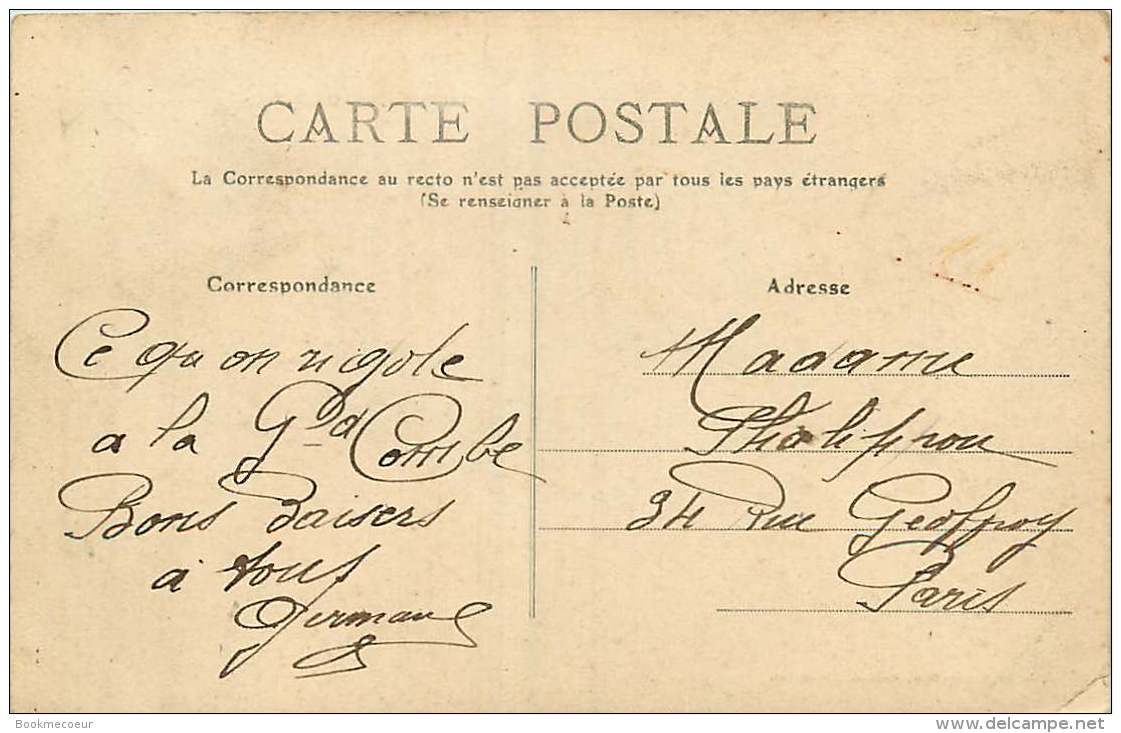 CARTE POSTALE
La Correspondance au recto n'est pas acceptée par tous les pays étrangers
(Se renseigner à la Poste)
Correspondance
Ce qu on rigole
a la Gde Combe
Bons Baisers
à tous
Germaine
Adresse
Madame
Phalippou
34 Rue Geoffroy
Paris
Bookmecoeur
www.delcampe.net